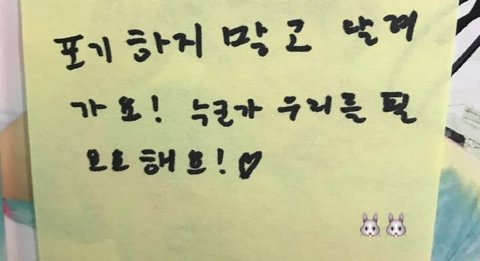 포기 하지 막고 날게
가요! 누군가 우리를 필
요요 해요!♡